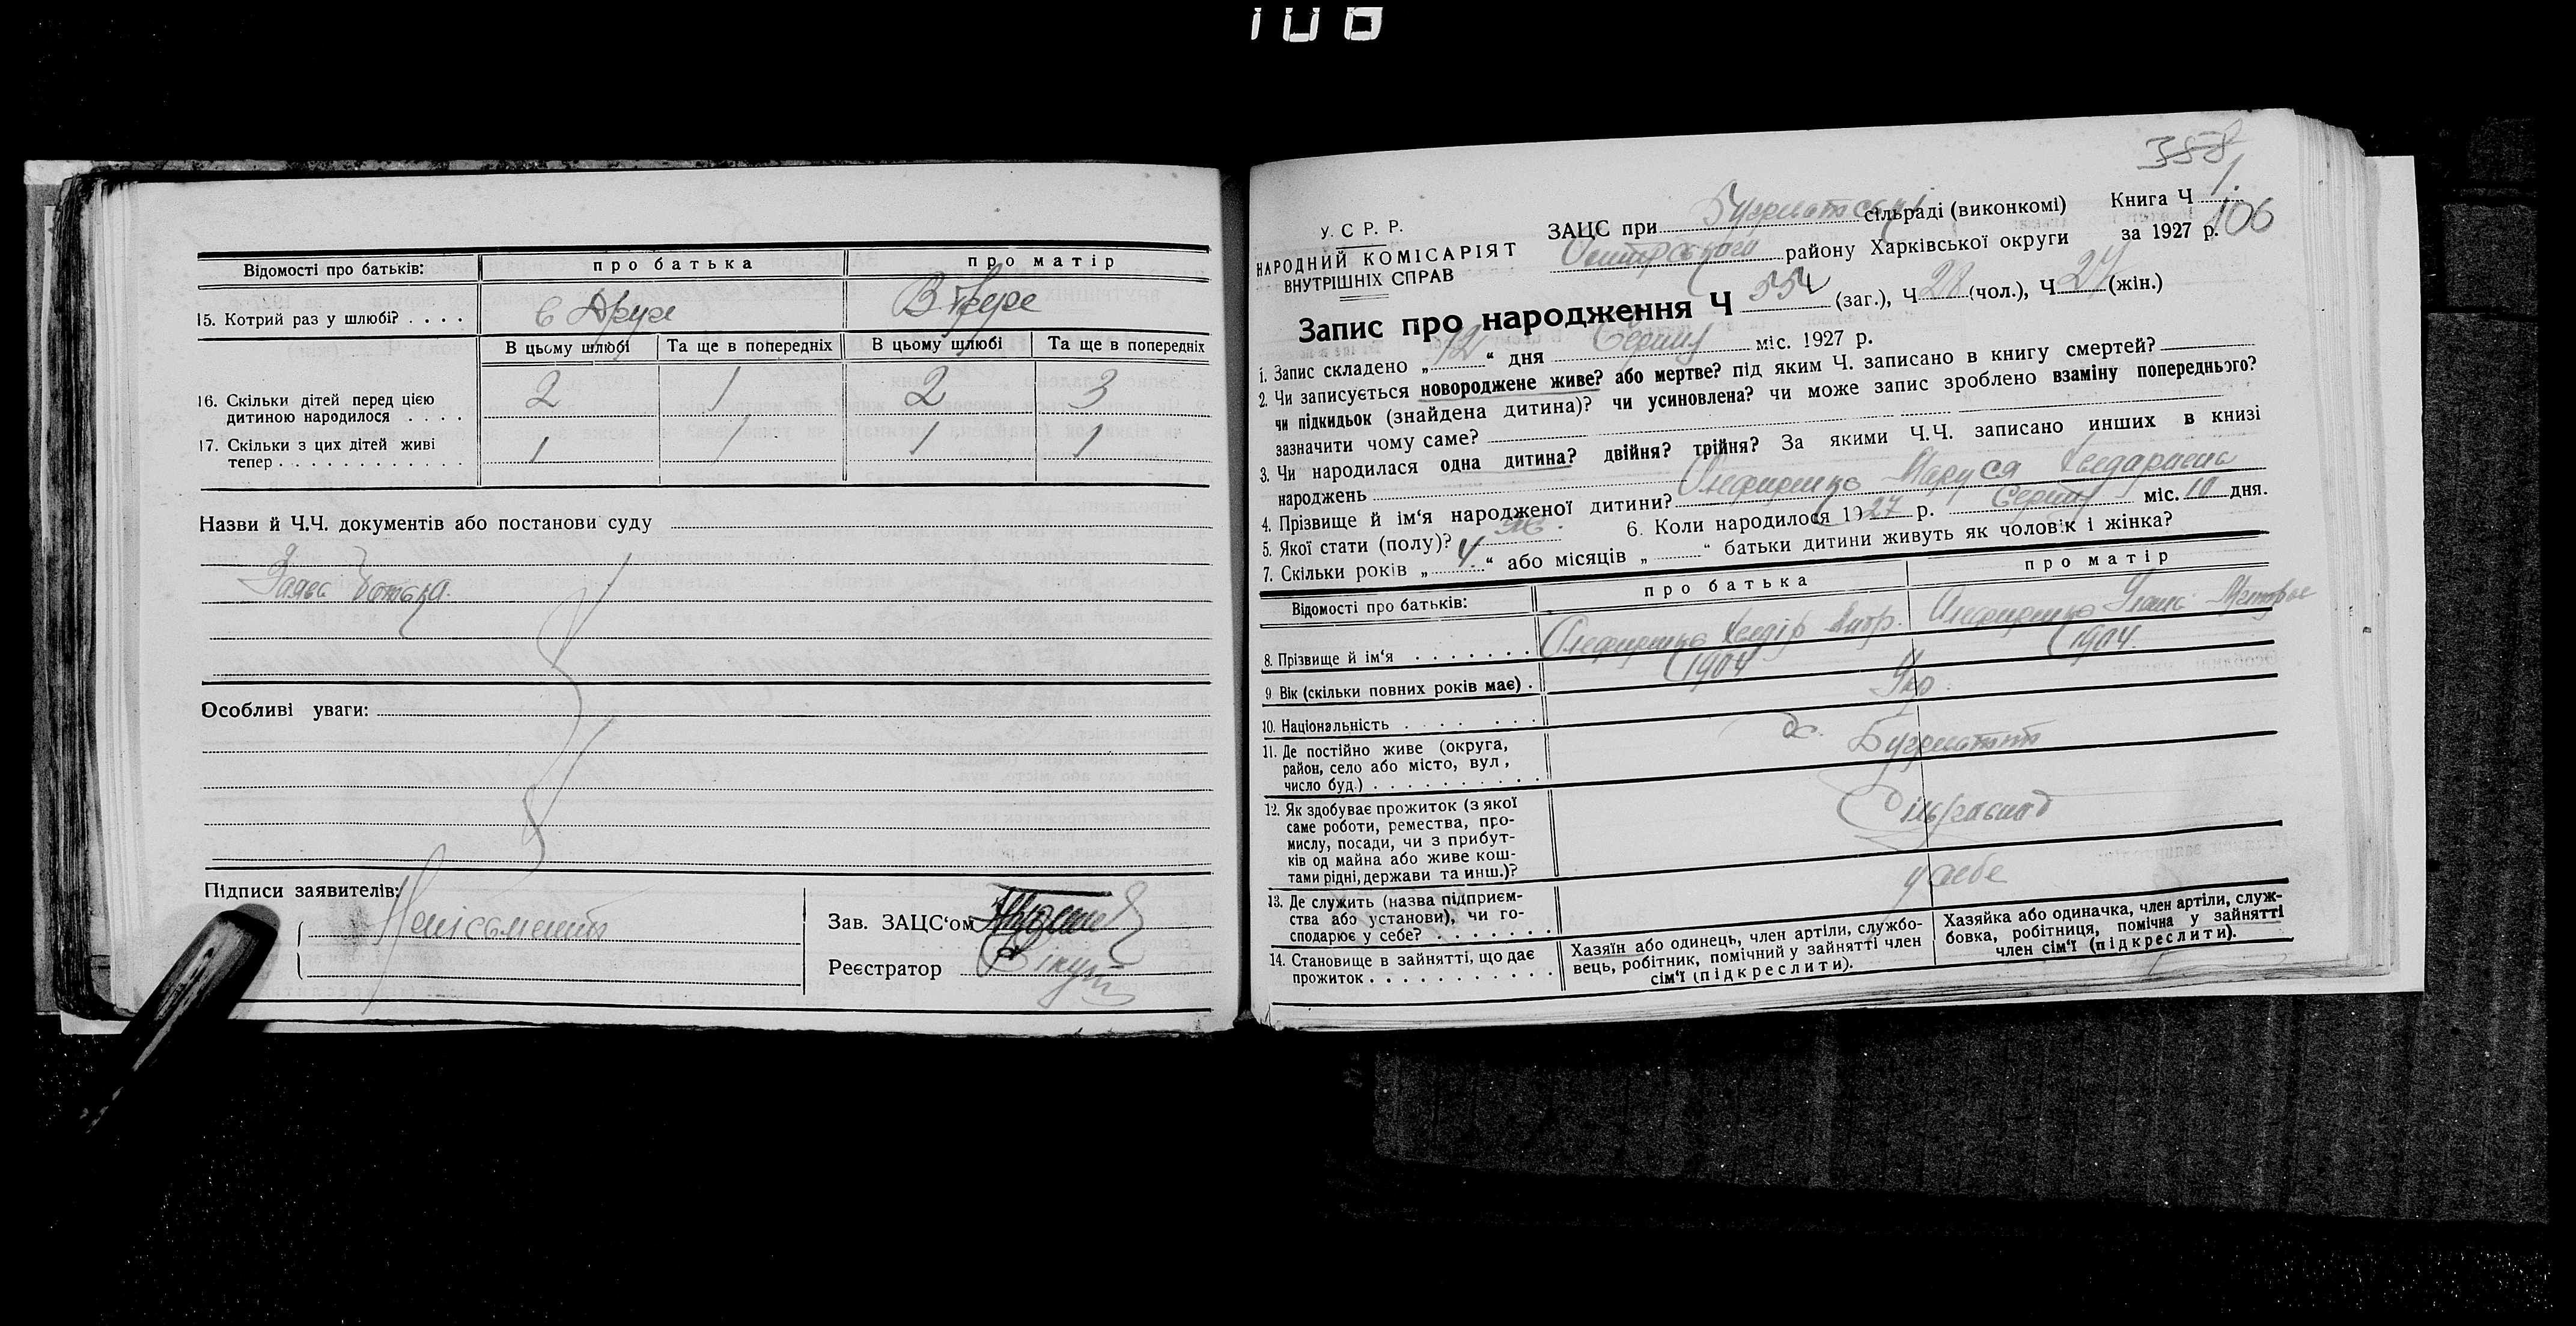 106
Відомості про батьків: про батька про матір
15. Котрий раз у шлюбі? . . . . в друге В
В цьому шлюбі Та ще в попередніх В цьому шлюбі Та ще в попередніх
16. Скільки дітей перед цією
дитиною народилося . . . . 2 1 2 3
17. Скільки з цих дітей живі
тепер . . . . . . . . . . . . 1 1 1 1
Назви й Ч.Ч. документів або постанови суду
Заява батька.
Особливі уваги:
Підписи заявителів:
Неписьменний
Зав. ЗАЦС'ом
Реєстратор
358
1.
106
У. С Р. Р.
НАРОДНИЙ КОМІСАРІЯТ
ВНУТРІШНІХ СПРАВ
ЗАЦС при сільраді (виконкомі) Книга Ч
району Харківської округи за 1927 р.
Запис про народження Ч 554 (заг.), Ч 28 (чол.), Ч 27 (жін.)
1. Запис складено „ 12 " дня Серпня міс. 1927 р.
2. Чи записується новороджене живе? або мертве? під яким Ч. записано в книгу смертей?
чи підкидьок (знайдена дитина)? чи усиновлена? чи може запис зроблено взаміну попереднього?
зазначити чому саме?
3. Чи народилася одна дитина? двійня? трійня? За якими Ч.Ч. записано инших в книзі
народжень
4. Прізвище й ім'я народженої дитини? Маруся
5. Якої стати (полу)? жі. 6. Коли народилося 1927 р. Серпня міс. 10 дня.
7. Скільки років „ 4 " або місяців „ " батьки дитини живуть як чоловік і жінка?
Відомості про батьків: про батька про матір
8. Прізвище й ім'я . . . . . . .
9. Вік (скільки повних років має) . 1904 1904.
10. Національність . . . . . . . Укр.
11. Де постійно живе (округа,
район, село або місто, вул,
число буд.) . . . . . . . . . .
12. Як здобуває прожиток (з якої
саме роботи, ремества, про-
мислу, посади, чи з прибут-
ків од майна або живе кош-
тами рідні, держави та инш.)?
13. Де служить (назва підприєм-
ства або установи), чи го-
сподарює у себе? . . . . . . . у себе
14. Становище в зайнятті, що дає
прожиток . . . . . . . . . .
Хазяїн або одинець, член артілі, службо-
вець, робітник, помічний у зайнятті член
сім'ї (підкреслити).
Хазяйка або одиначка, член артілі, служ-
бовка, робітниця, помічна у зайнятті
член сім'ї (підкреслити).